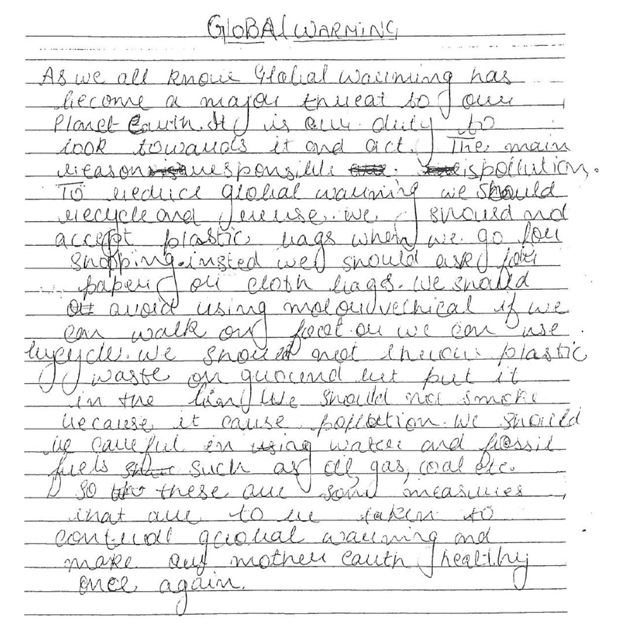 GloBAl WARMING
As we all know Global warming has
become a major threat to our
Planet Earth. It is our duty to
look towards it and act. The main
reason responsible is pollution.
To reduce global warming we should
recycle and reuse. we should not
accept plastic bags when we go for
shopping. insted we should ask for
paper or cloth bags. we should
avoid using motour vechical if we
can walk on foot or we can use
bycycle. we should not throw plastic
waste on ground but put it
in the bin. We should not smoke
because it cause pollution. We should
be careful in using water and fossil
fuels such as oil, gas, coal etc.
So these are some measures
that are to be taken to
control global warming and
make our mother earth healthy
once again.